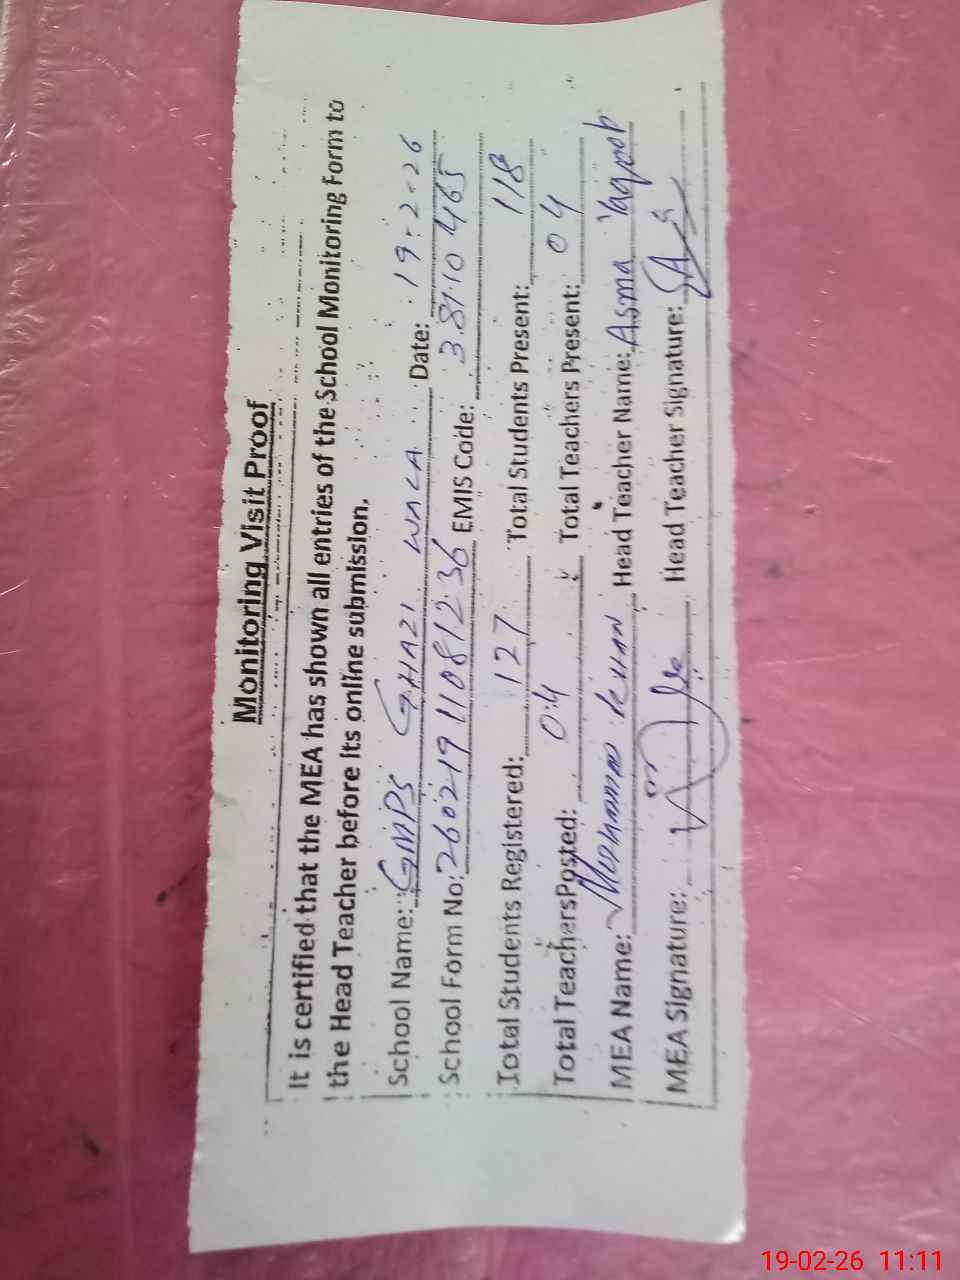 Monitoring Visit Proof
It is certified that the MEA has shown all entries of the School Monitoring Form to
the Head Teacher before its online submission.
School Name: GMPS GHAZI WALA Date: 19-2-26
School Form No: 260219110812 36 EMIS Code: 3.81.10 465
Total Students Registered: 127 Total Students Present: 118
Total Teachers Posted: 04 Total Teachers Present: 04
MEA Name: Muhammad Khan Head Teacher Name: Asma Yaqoob
MEA Signature: Head Teacher Signature:
19-02-26 11:11